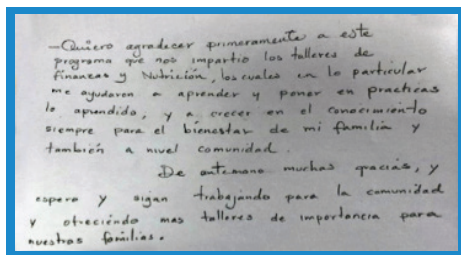 -Quiero agradecer primeramente a este
programa que nos impartio los talleres de
finanzas y Nutrición, los cuales en lo particular
me ayudaron a aprender y poner en practicas
lo aprendido, y a crecer en el conocimiento
siempre para el bienestar de mi familia y
también a nivel comunidad.
De antemano muchas gracias, y
espero y sigan trabajando para la comunidad
y ofreciendo mas talleres de importancia para
nuestras familias.